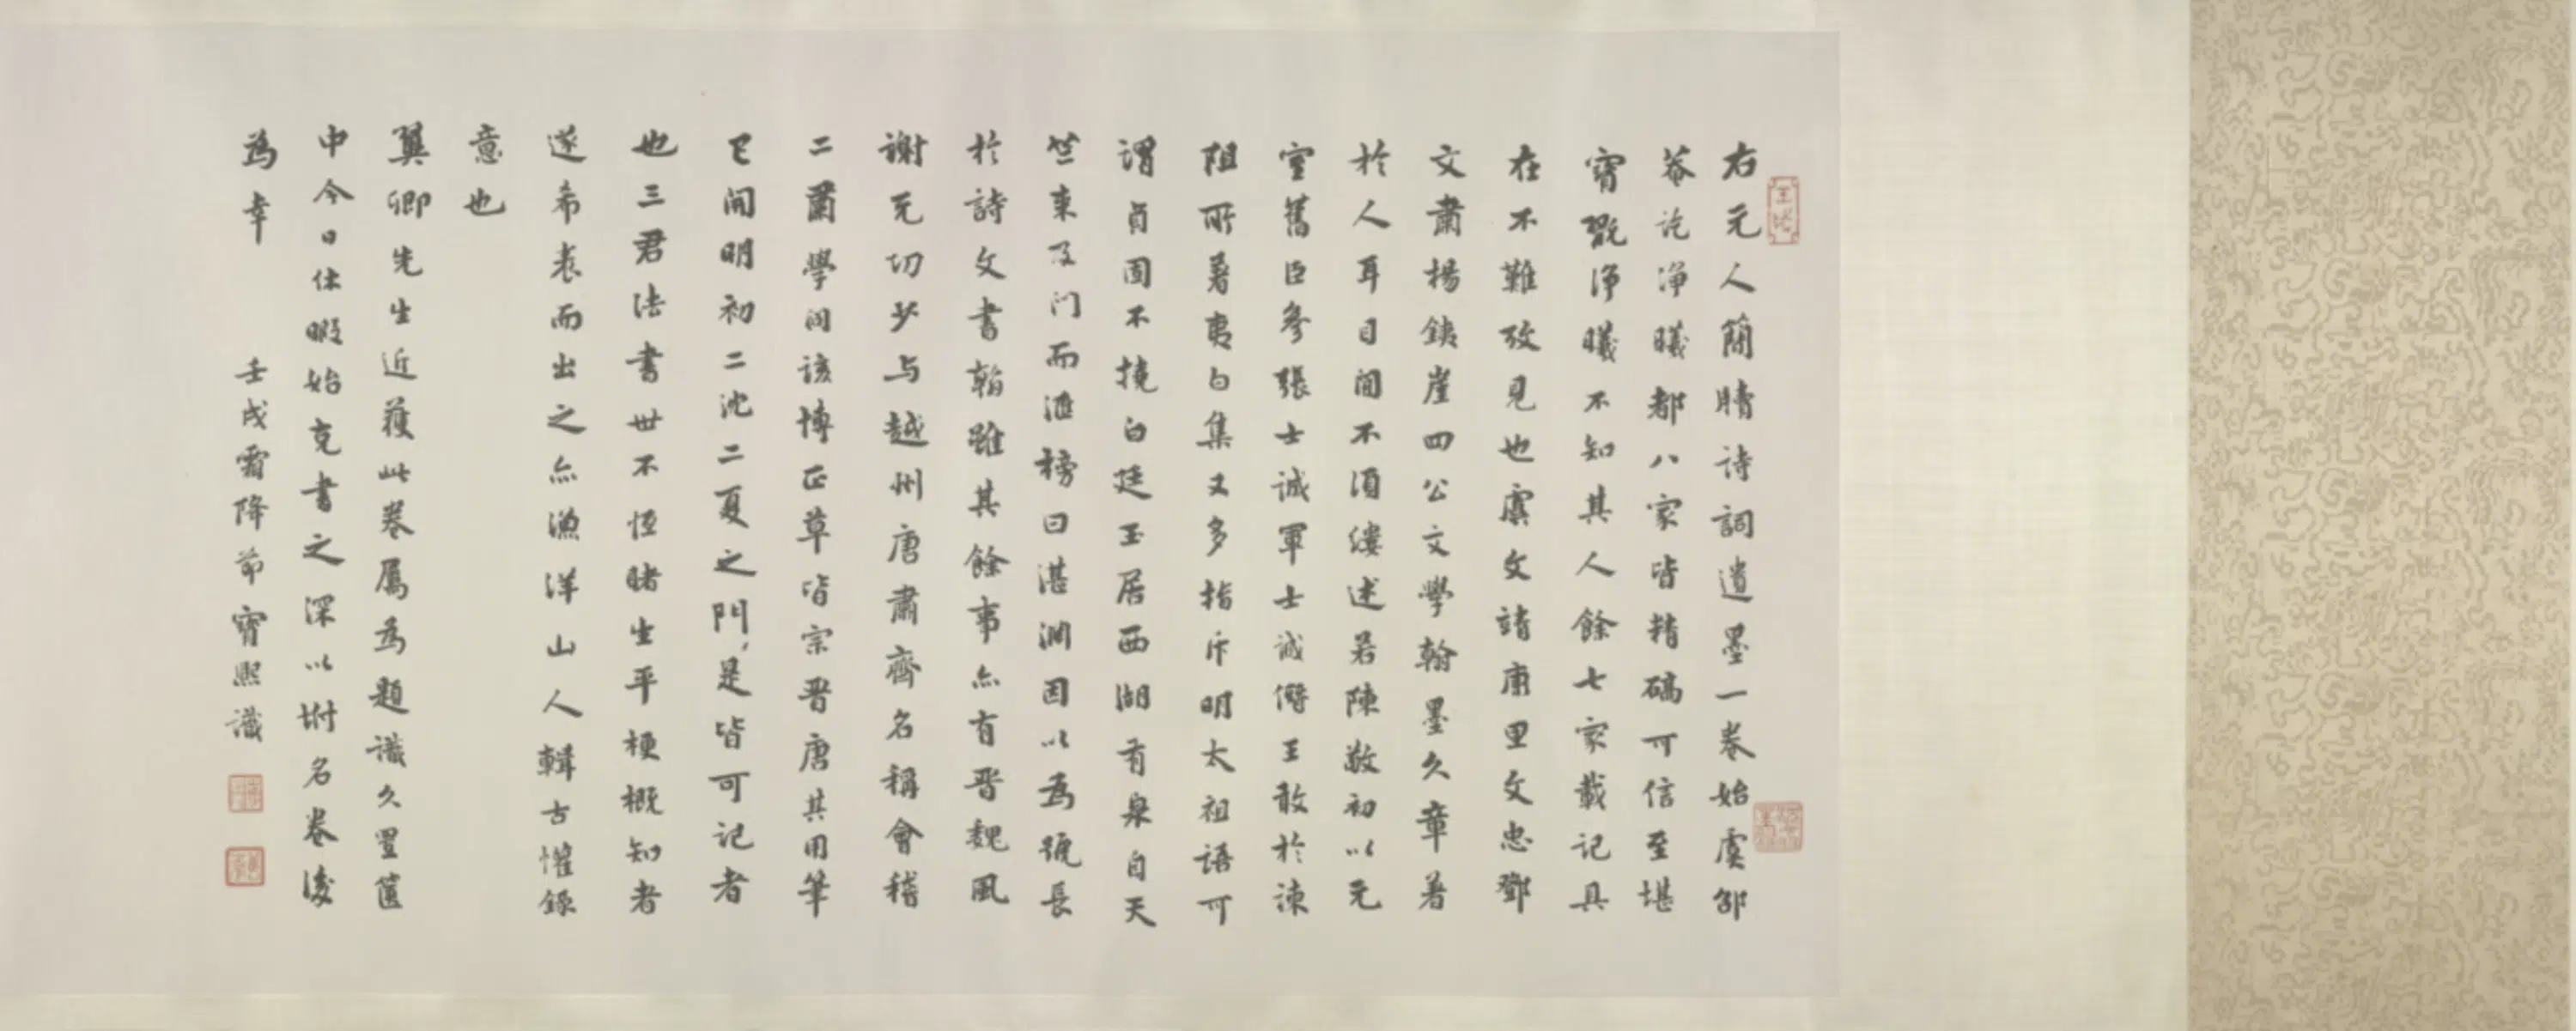 右元人簡牘詩詞遺墨一卷始虞邵
菴訖淨曦都八家皆精確可信至堪
寶翫淨曦不知其人餘七家載記具
在不難攷見也虞文靖康里文忠鄧
文肅楊鐵崖四公文學翰墨久章著
於人耳目間不須縷述若陳敬初以元
室舊臣參張士誠軍士誠僭王敢於諫
阻所著夷白集又多指斥明太祖語可
謂貞固不撓白廷玉居西湖有泉自天
竺來及门而匯榜曰湛淵因以為號長
於詩文書翰雖其餘事亦有晋魏風
謝无功少与越州唐肅齊名稱會稽
二肅學问該博正草皆宗晋唐其用筆
已開明初二沈二夏之門是皆可記者
也三君法書世不恆睹生平梗概知者
遂希表而出之亦漁洋山人輯古懽錄
意也
巽卿先生近蒦此卷屬為題識久置篋
中今日休暇始克書之深以坿名卷後
為幸 壬戌霜降前寶熙識